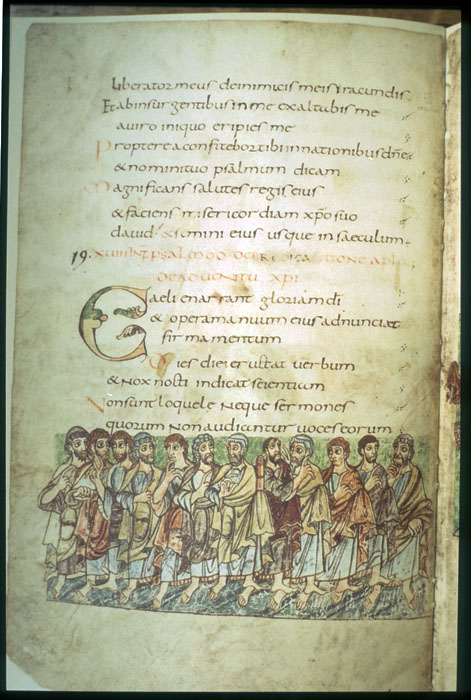 liberator meus de inimicis meis iracundis
Et ab insurgentibus in me exaltabis me
a viro iniquo eripies me
Propterea confitebor tibi in nationibus dñe
& nomini tuo psalmum dicam
Magnificans salutes regis eius
& faciens misericordiam xpo suo
david & semini eius usque in saeculum
19.
DE ADVENTU XPI
Caeli enarrant gloriam di
& opera manuum eius adnunciat
firmamentum
Dies diei eructat verbum
& Nox nocti indicat scientiam
Non sunt loquele Neque sermones
quorum Non audiuntur voces eorum